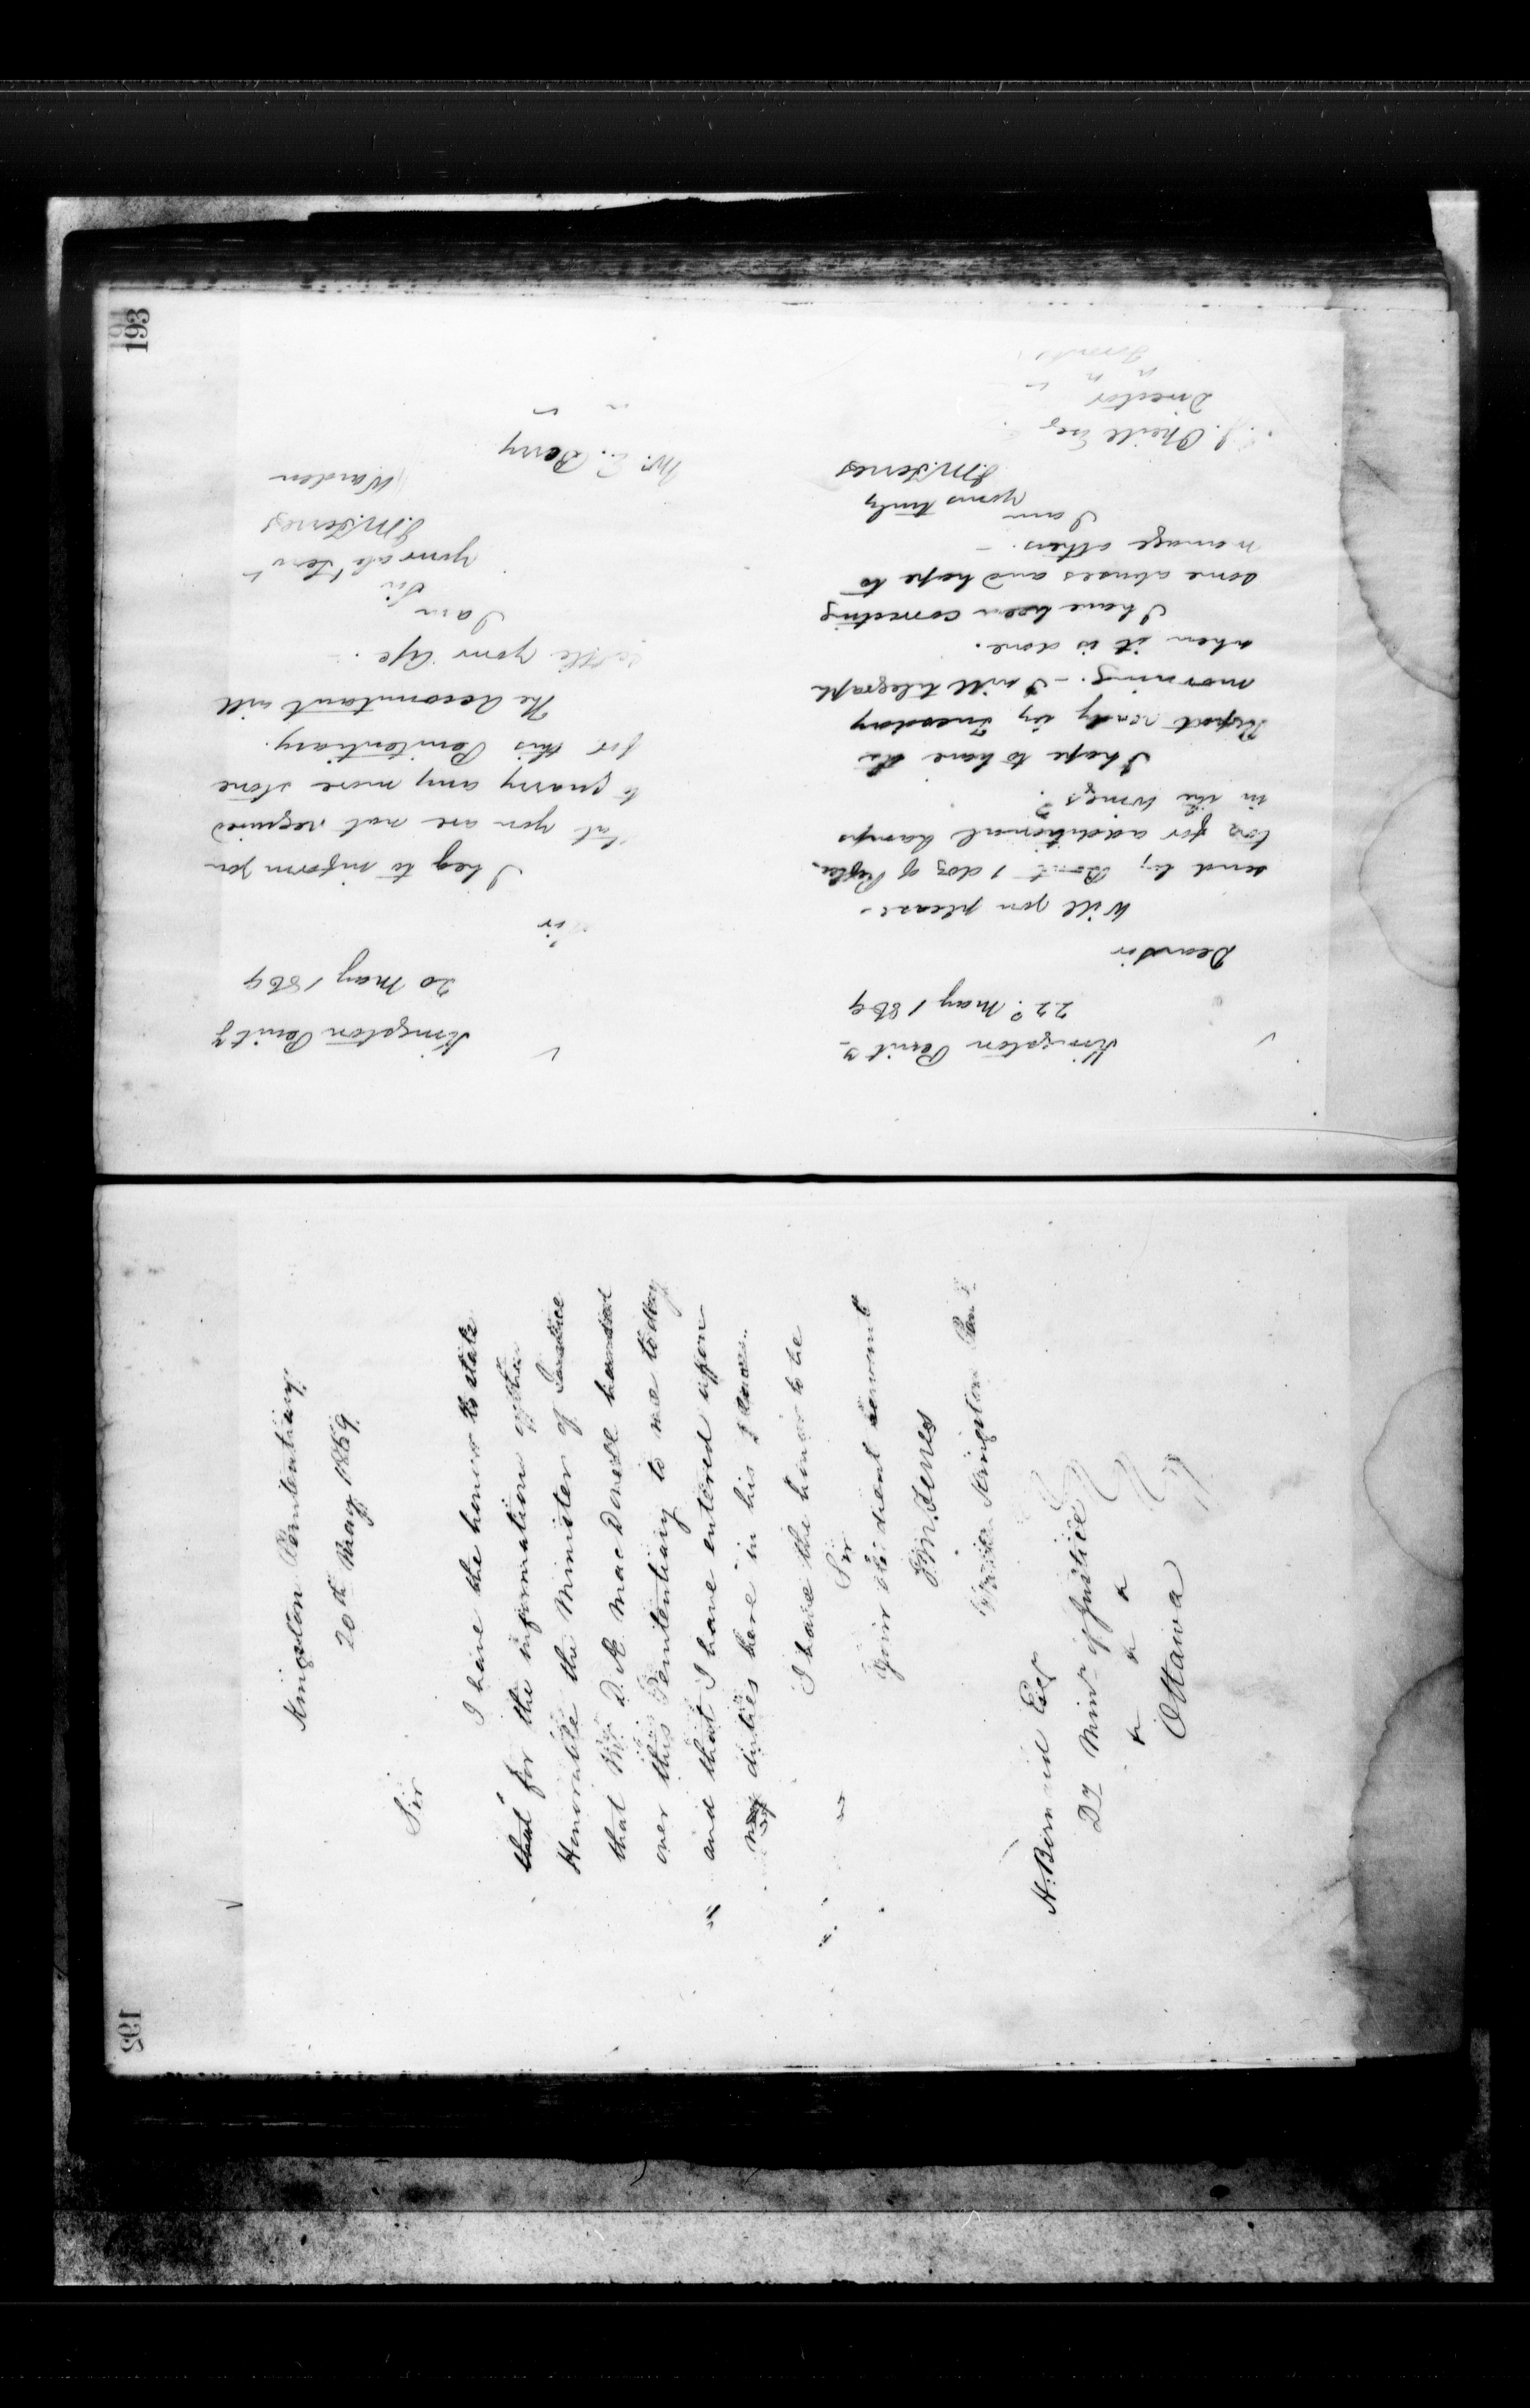 192
Kingston Penitentiary
20th May 1869
Sir
I have the honor to state
that for the information of the
Honorable the Minister of Justice
that Mr. D. Æ. MacDonell handed
over this Penitentiary to me to day
and that I have entered upon
my duties here in his place.
I have the honor to be
Sir
Your obedient servant
J. M. Ferres
Kingston
H. Bernard Esq
Dy Minr of Justice
Ottawa
193
Kingston Penity
20 May 1869
Sir
I beg to inform you
that you are not required
to quarry any more stone
for this Penitentiary.
The Accountant will
settle your a/c.
I am
Sir
Your obt Servt
J. M. Ferres
Warden
Mr. E. Berry
Kingston Penity
22d. May 1869
Dear Sir
Will you please
send by 1 doz of
for additional Lamps
in the wings?
I hope to have the
Report ready by Tuesday
morning. - I will telegraph
when it is done.
I have been correcting
some abuses and hope to
manage others. -
I am
yours truly
J. M. Ferres
J. O'Neill Esq
Director
Toronto